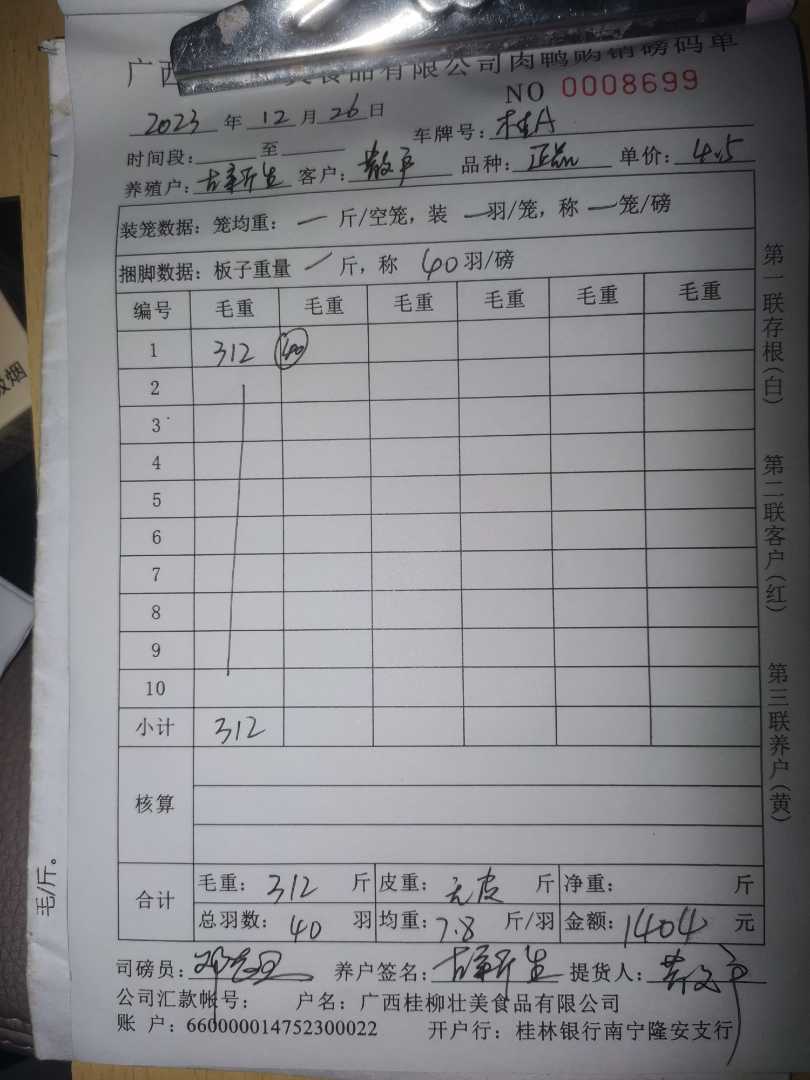 广西 美食品有限公司肉鸭购销磅码单
NO 0008699
2023 年 12 月 26 日
车牌号: 桂A
时间段: 至
养殖户: 客户: 散户 品种: 正品 单价: 4.5
装笼数据: 笼均重: 一 斤/空笼, 装 一 羽/笼, 称 一 笼/磅
捆脚数据: 板子重量 / 斤, 称 40 羽/磅
编号 毛重 毛重 毛重 毛重 毛重 毛重
1 312 40
2
3
4
5
6
7
8
9
10
小计 312
核算
合计 毛重: 312 斤 皮重: 无皮 斤 净重: 斤
总羽数: 40 羽 均重: 7.8 斤/羽 金额: 1404 元
司磅员: 养户签名: 提货人: 散户
公司汇款帐号: 户名: 广西桂柳壮美食品有限公司
账 户: 660000014752300022 开户行: 桂林银行南宁隆安支行
第一联存根(白) 第二联客户(红) 第三联养户(黄)
毛/斤。
烟